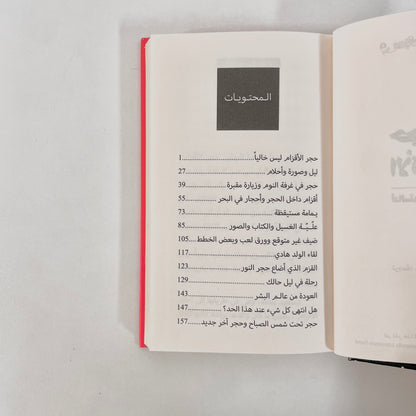 المحتويات
حجر الأقزام ليس خالياً 1
ليل وصورة وأحلام 27
حجر في غرفة النوم وزيارة مقبرة 39
أقزام داخل الحجر وأحجار في البحر 55
يمامة مستيقظة 73
علبة الغسيل والكتاب والصور 85
ضيف غير متوقع وورق لعب وبعض الخطط 105
لقاء الولد هادي 117
القزم الذي أضاع حجر النور 123
رحلة في ليل حالك 129
العودة من عالم البشر 143
هل انتهى كل شيء عند هذا الحد؟ 147
حجر تحت شمس الصباح وحجر آخر جديد 157